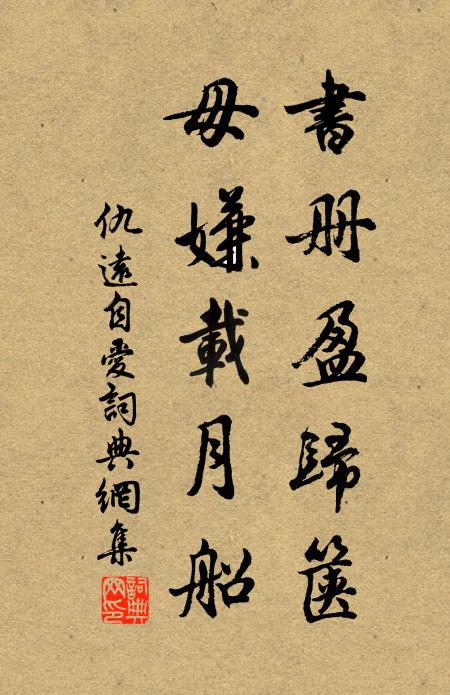 書册盈歸篋
毋嫌載月船
仇遠自愛詞典網集
詞典網印